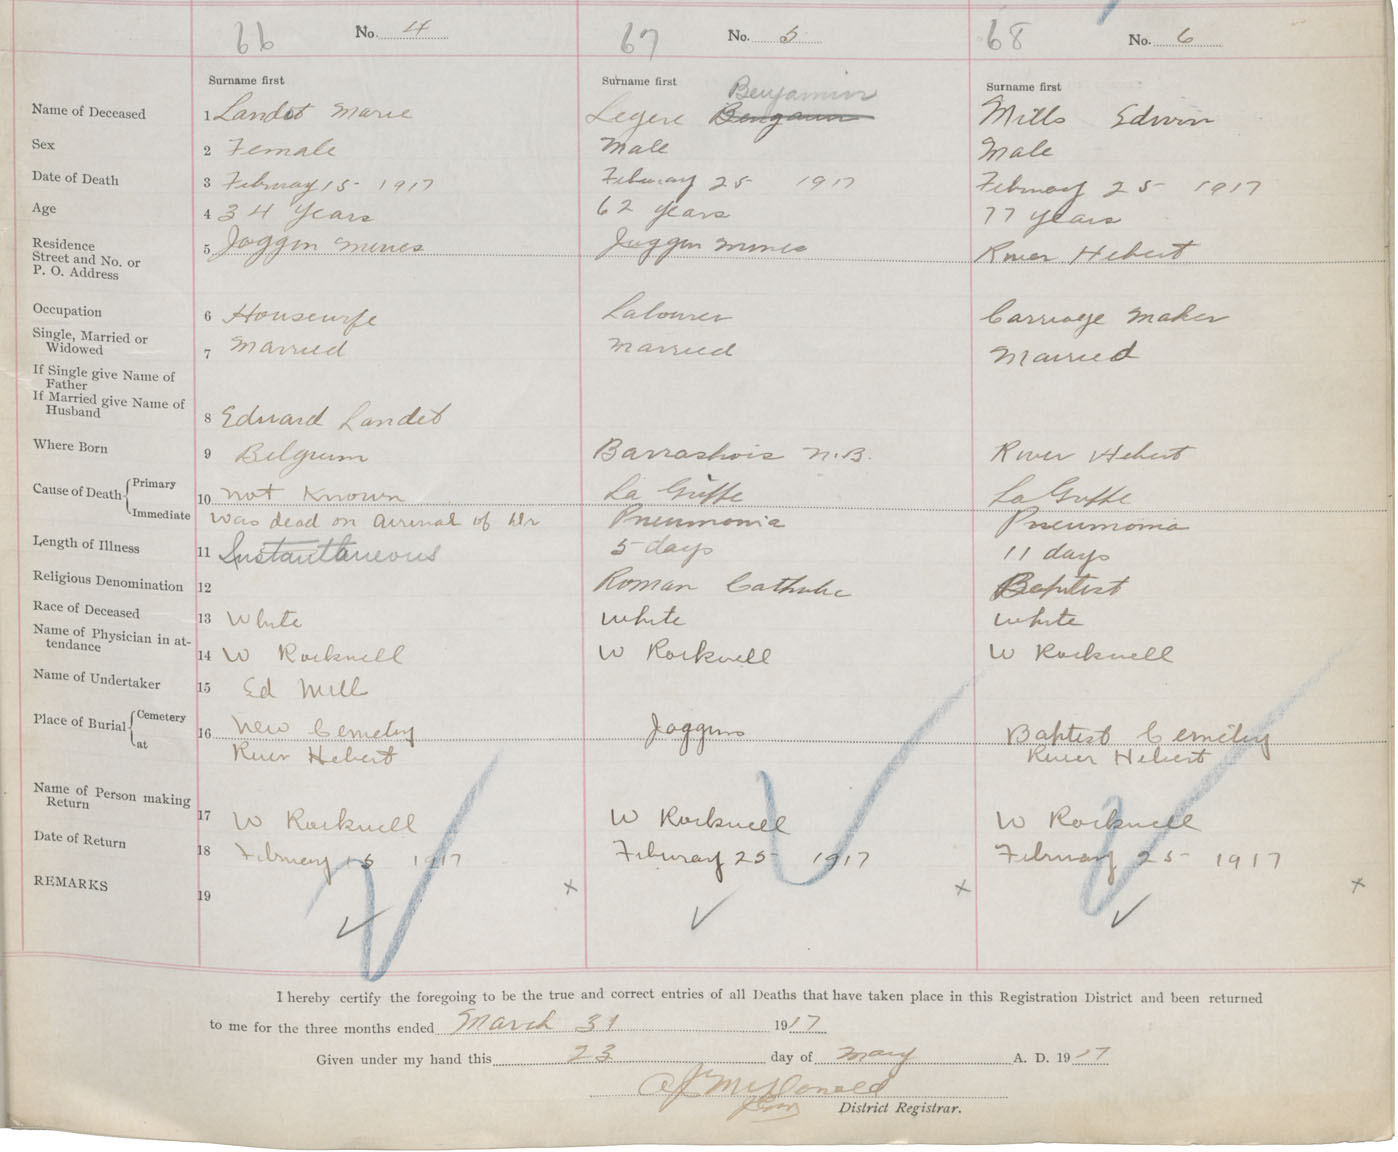 66 No. 4
67 No. 5
68 No. 6
Surname first
Surname first
Surname first
Benjamin
Name of Deceased 1 Landot Marie
Legere Bengamin
Mills Edwin
Sex 2 Female
Male
Male
Date of Death 3 February 15 1917
February 25 1917
February 25 1917
Age 4 34 Years
62 years
77 years
Residence
Street and No. or
P. O. Address
5 Joggin Mines
Joggin Mines
River Hebert
Occupation 6 Housewife
Labourer
Carriage Maker
Single, Married or
Widowed
7 Married
Married
Married
If Single give Name of
Father
If Married give Name of
Husband
8 Edward Landet
Where Born 9 Belgium
Barrashois N.B.
River Hebert
Cause of Death { Primary
Immediate
10 not Known
was dead on arrival of Dr
La Grippe
Pneumonia
La Grippe
Pneumonia
Length of Illness 11 Instantaneous
5 days
11 days
Religious Denomination 12
Roman Catholic
Baptist
Race of Deceased 13 White
White
White
Name of Physician in at-
tendance
14 W Rockwell
W Rockwell
W Rockwell
Name of Undertaker 15 Ed Mills
Place of Burial { Cemetery
at
16 New Cemetery
River Hebert
Joggins
Baptist Cemetery
River Hebert
Name of Person making
Return
17 W Rockwell
W Rockwell
W Rockwell
Date of Return 18 February 15 1917
February 25 1917
February 25 1917
REMARKS 19
I hereby certify the foregoing to be the true and correct entries of all Deaths that have taken place in this Registration District and been returned
to me for the three months ended March 31 1917
Given under my hand this 23 day of May A. D. 1917
McDonald
District Registrar.